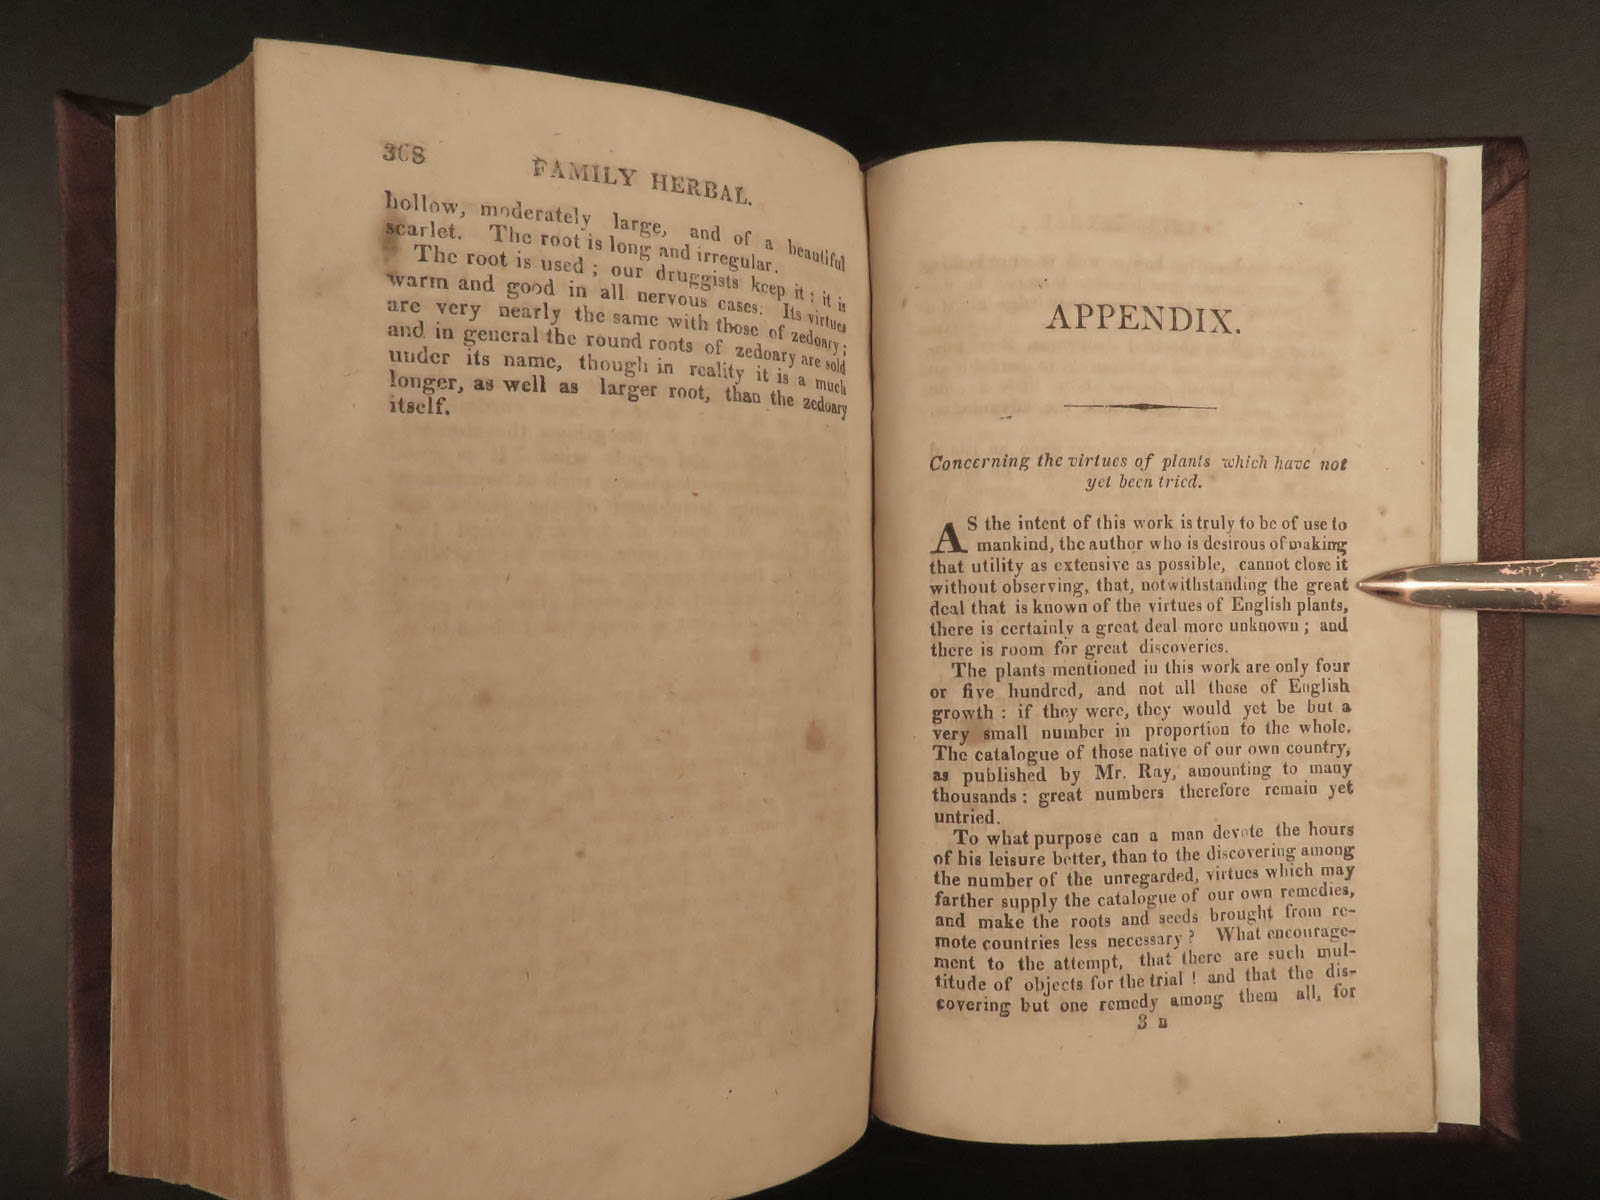 368
FAMILY HERBAL.
hollow, moderately large, and of a beautiful
scarlet. The root is long and irregular.
The root is used; our druggists keep it: it is
warm and good in all nervous cases. Its virtues
are very nearly the same with those of zedoary;
and in general the round roots of zedoary are sold
under its name, though in reality it is a much
longer, as well as larger root, than the zedoary
itself.
APPENDIX.
Concerning the virtues of plants which have not
yet been tried.
AS the intent of this work is truly to be of use to
mankind, the author who is desirous of making
that utility as extensive as possible, cannot close it
without observing, that, notwithstanding the great
deal that is known of the virtues of English plants,
there is certainly a great deal more unknown; and
there is room for great discoveries.
The plants mentioned in this work are only four
or five hundred, and not all these of English
growth: if they were, they would yet be but a
very small number in proportion to the whole.
The catalogue of those native of our own country,
as published by Mr. Ray, amounting to many
thousands: great numbers therefore remain yet
untried.
To what purpose can a man devote the hours
of his leisure better, than to the discovering among
the number of the unregarded, virtues which may
farther supply the catalogue of our own remedies,
and make the roots and seeds brought from re-
mote countries less necessary? What encourage-
ment to the attempt, that there are such mul-
titude of objects for the trial! and that the dis-
covering but one remedy among them all, for
3 B